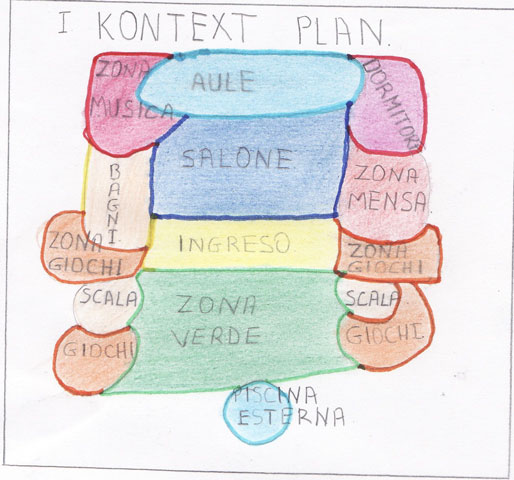 I KONTEXT PLAN.
ZONA
MUSICA
AULE
DORMITORI
BAGNI
SALONE
ZONA
MENSA
ZONA
GIOCHI
INGRESO
ZONA
GIOCHI
SCALA
ZONA
VERDE
SCALA
GIOCHI
GIOCHI
PISCINA
ESTERNA